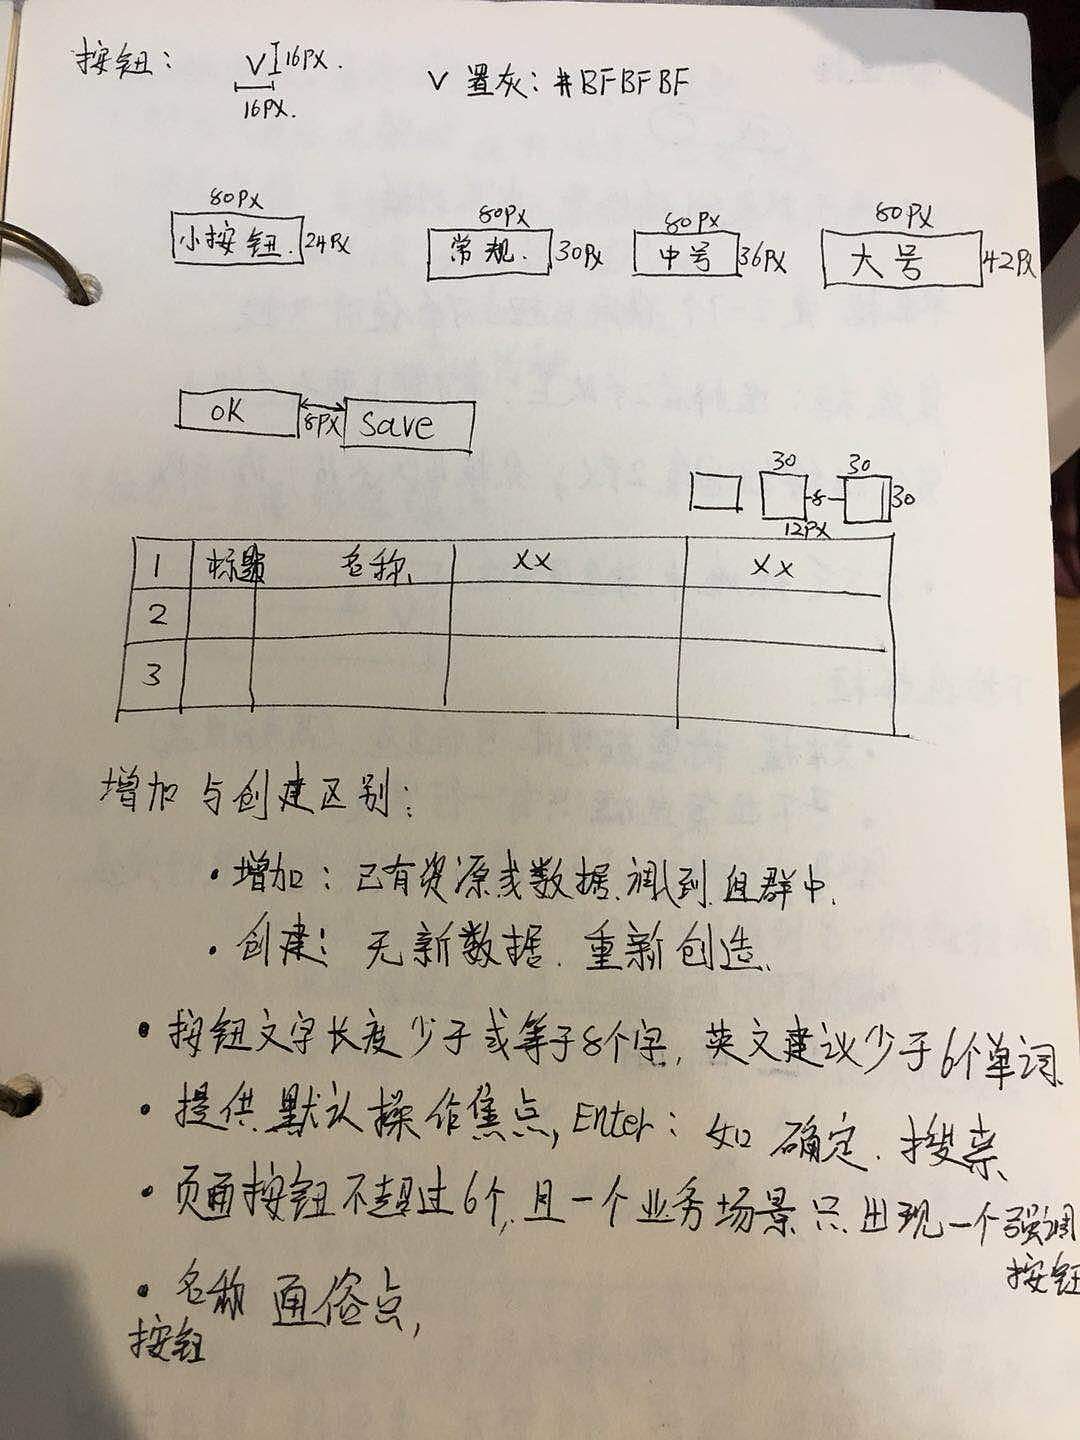 按钮： V 16PX.
16PX.
V 置灰：#BFBFBF
80PX 80PX 80PX 80PX
小按钮. 24PX 常规. 30PX 中号 36PX 大号 42PX
OK 8PX Save
30 30
8 30
12PX
1 标题 名称 XX XX
2
3
增加与创建区别：
·增加：已有资源或数据.调到组群中.
·创建：无新数据.重新创造.
·按钮文字长度少于或等于8个字，英文建议少于6个单词
·提供默认操作焦点，Enter：如确定.搜索
·页面按钮不超过6个，且一个业务场景只出现一个强调
按钮
·名称通俗点，
按钮